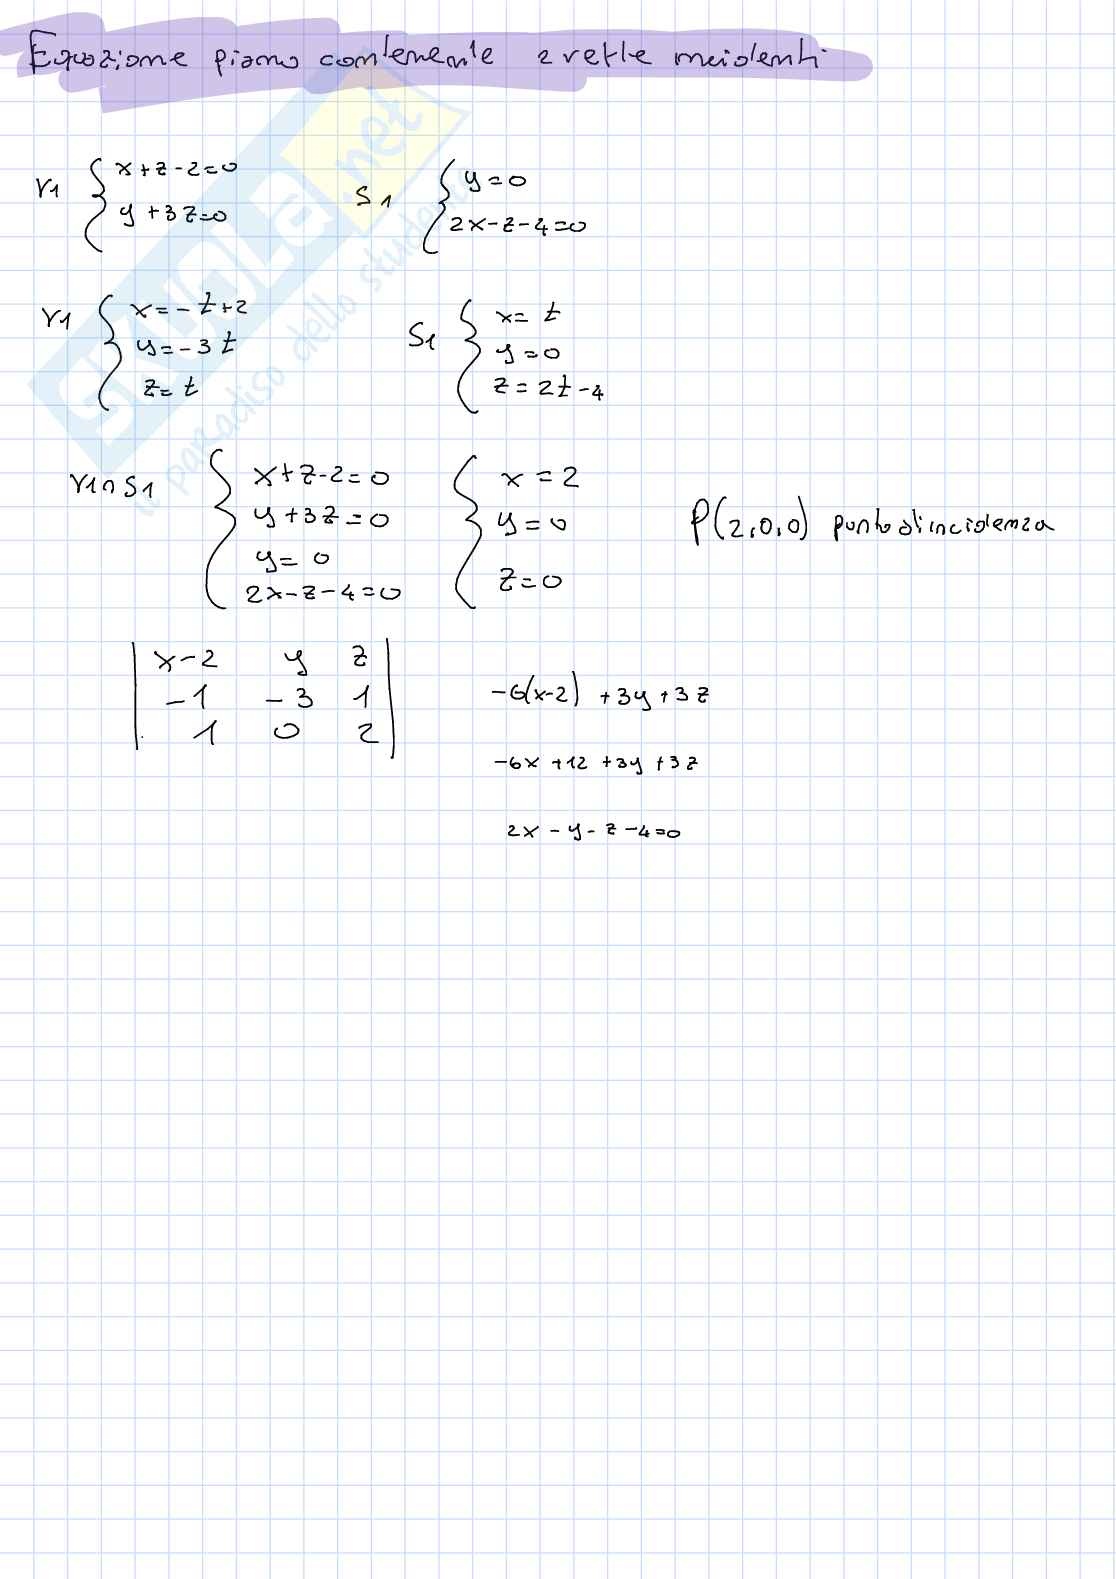 Equazione piano contenente 2 rette incidenti
r1 { x+z-2=0
y+3z=0
S1 { y=0
2x-z-4=0
r1 { x=-t+2
y=-3t
z=t
S1 { x=t
y=0
z=2t-4
r1∩S1 { x+z-2=0
y+3z=0
y=0
2x-z-4=0
{ x=2
y=0
z=0
P(2,0,0) punto d'incidenza
| x-2 y z |
| -1 -3 1 |
| 1 0 2 |
-6(x-2) +3y+3z
-6x+12+3y+3z
2x-y-z-4=0
SKUOLA.net
il paradiso dello studente